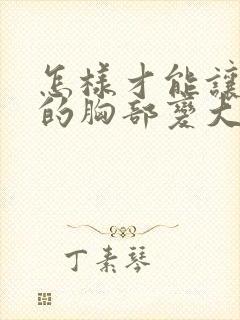 怎樣才能讓
的胸部變大
丁素琴